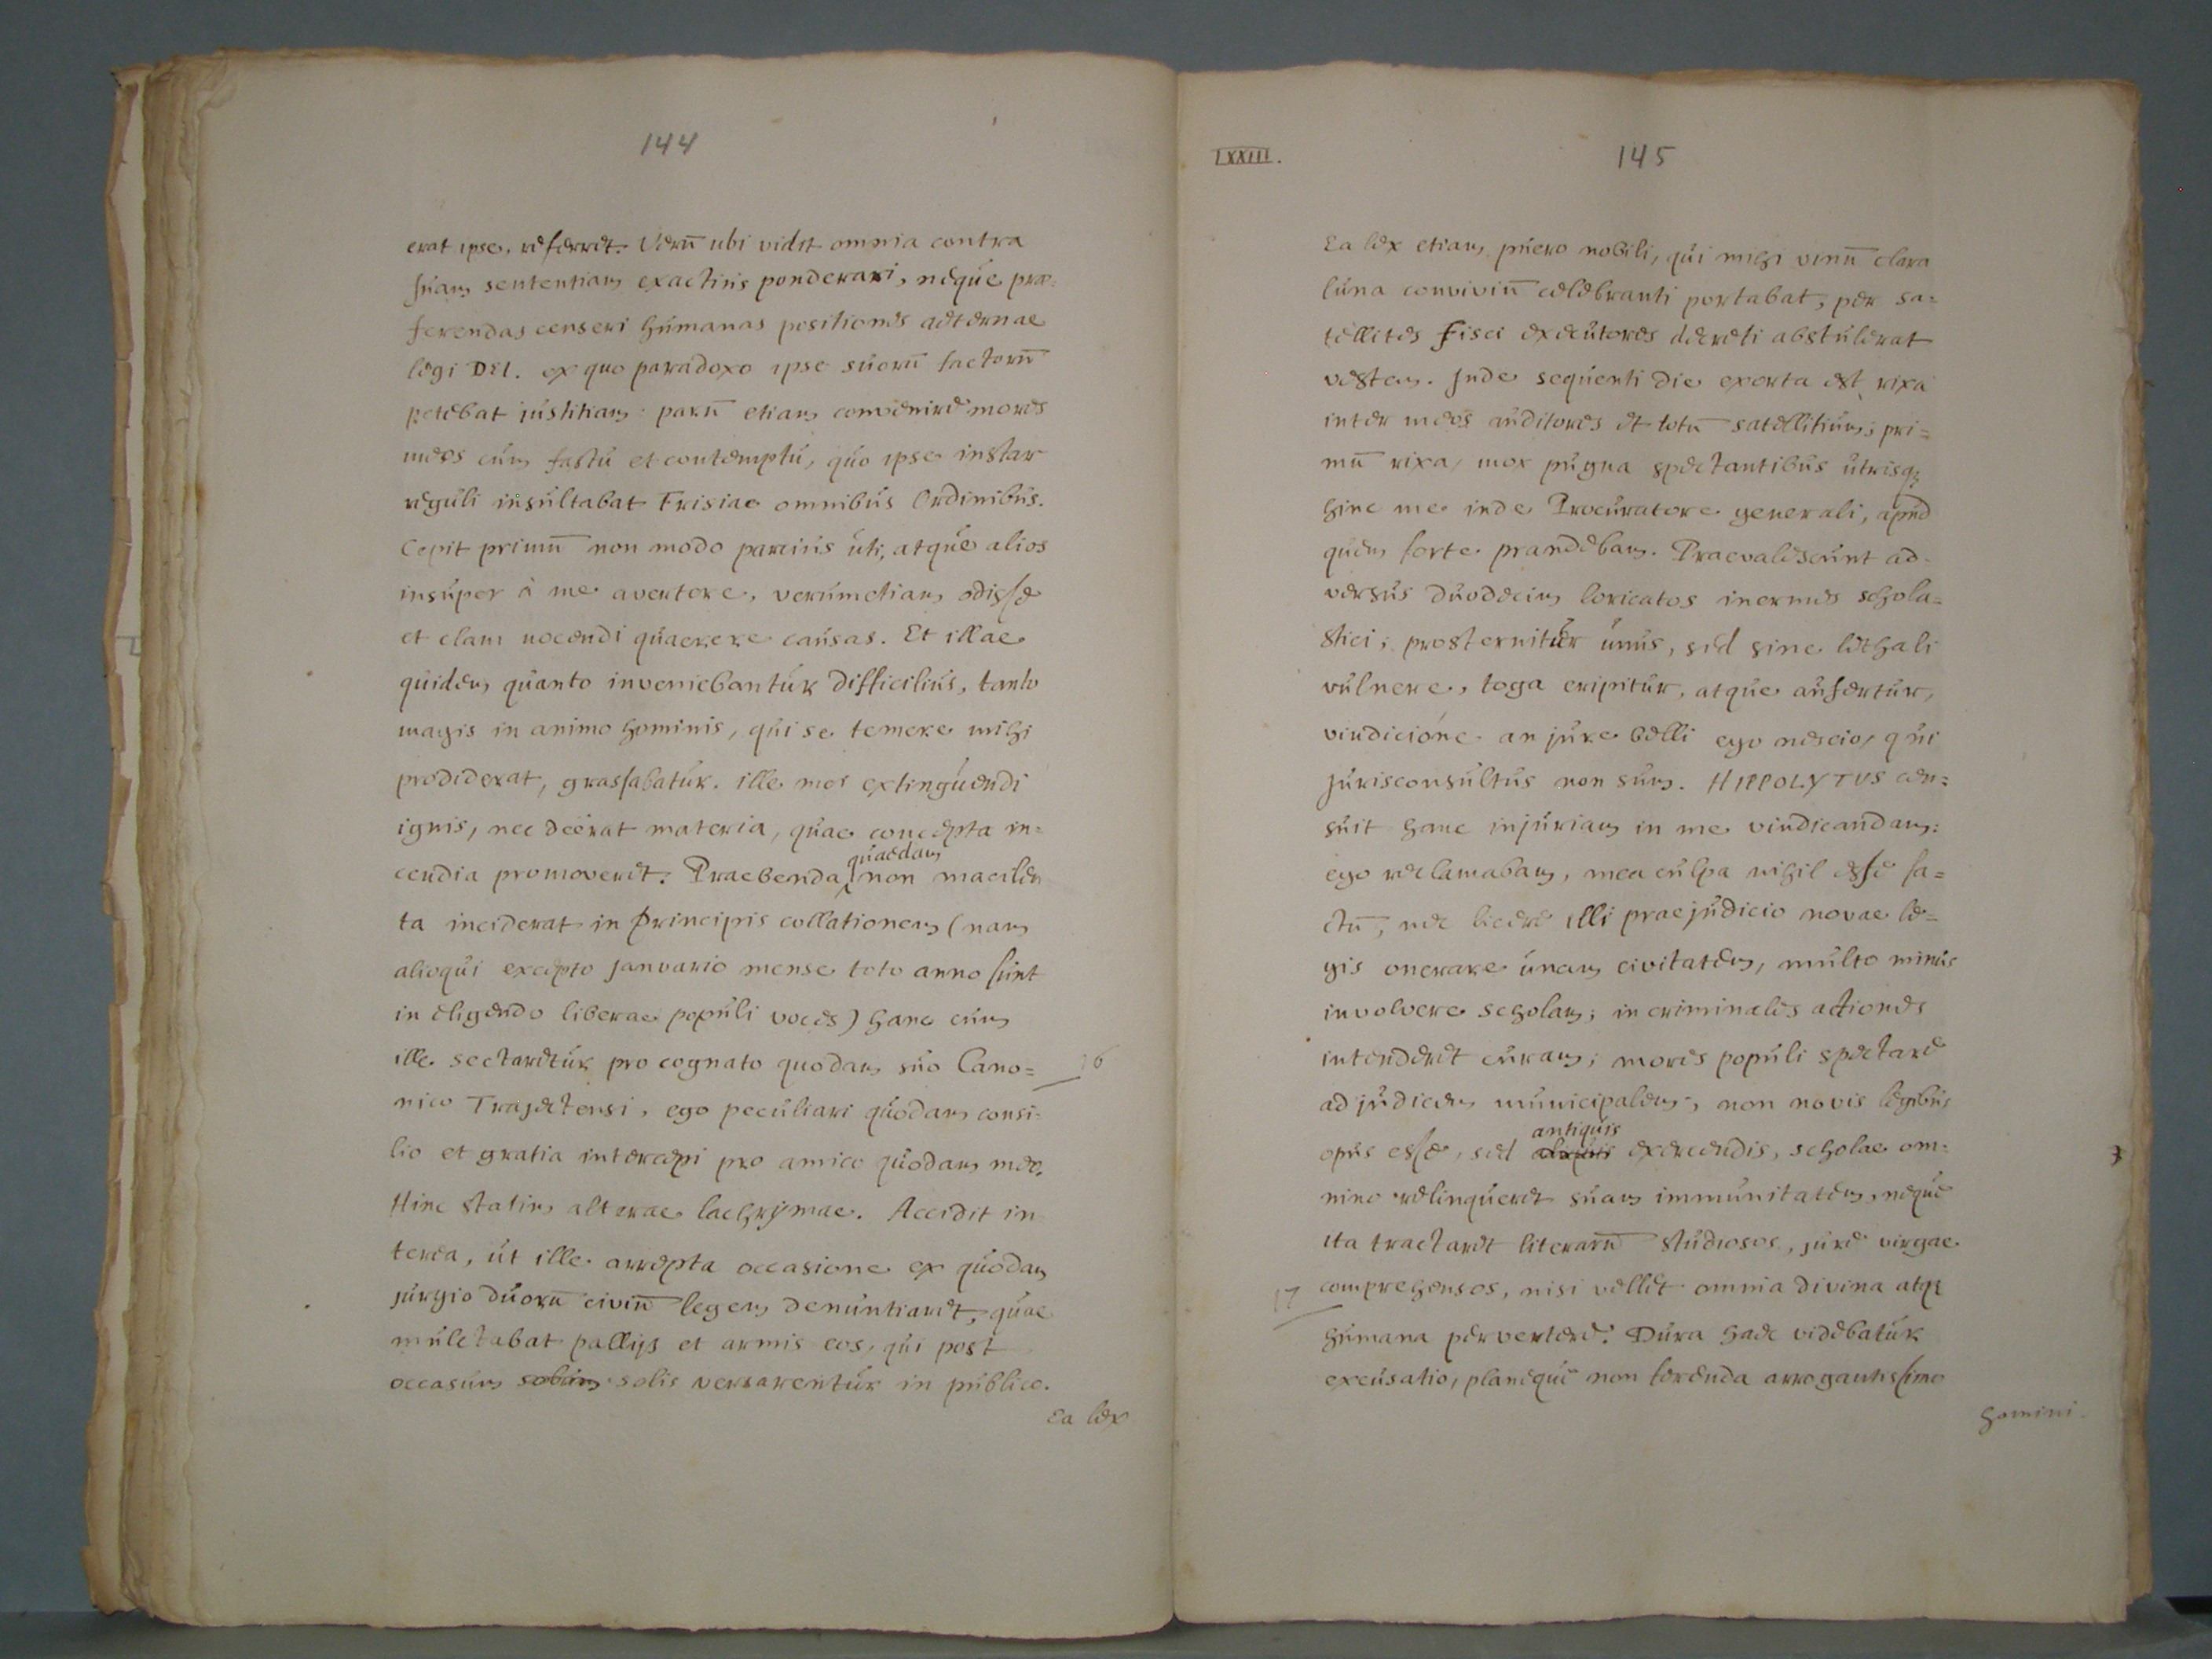 144
erat ipse, referret. Verū ubi vidit omnia contra
suam sententiam exactius ponderari, neque prae=
ferendas censeri humanas positiones aeternae
legi DEI. ex quo paradoxo ipse suorū factorū
petebat justitiam: parū etiam convenire mores
meos cum fastu et contemptu, quo ipse instar
reguli insultabat Frisiae omnibus Ordinibus.
Cepit primū non modo parcius uti, atque alios
insuper à me avertere, verumetiam odisse
et clam nocendi quaerere causas. Et illae
quidem quanto inveniebantur difficilius, tanto
magis in animo hominis, qui se temere mihi
prodiderat, grassabatur. ille mos extinguendi
ignis, nec deerat materia, quae concepta in=
cendia promoveret. Praebenda quaedam non macilen
ta inciderat in principis collationem (nam
alioqui excepto Januario mense toto anno sunt
in eligendo liberae populi voces) hanc cum
ille sectaretur pro cognato quodam suo Cano=
16
nico Trajectensi, ego peculiari quodam consi=
lio et gratia intercepi pro amico quodam meo.
Hinc statim alterae lachrymae. Accidit in
terea, ut ille arrepta occasione ex quodam
jurgio duorū civiū legem denuntiaret, quae
mulctabat pallijs et armis eos, qui post
occasum solis versarentur in publico.
Ea lex
LXXIII.
145
Ea lex etiam puero nobili, qui mihi vinū clara
luna conviviū celebranti portabat, per sa=
tellites fisci executores decreti abstulerat
vestem. Inde sequenti die exorta est rixa
inter meos auditores et totū satellitium; pri=
mū rixa, mox pugna spectantibus utrisq;
hinc me inde Procuratore generali, apud
quem forte prandebam. Praevalescunt ad=
versus duodecim loricatos inermes schola=
stici; prosternitur unus, sed sine lethali
vulnere, toga eripitur, atque aufertur,
vindicióne an jure belli ego nescio, qui
jurisconsultus non sum. HIPPOLYTUS cen=
suit hanc injuriam in me vindicandam:
ego reclamabam, mea culpa nihil esse fa=
ctū, nec licere illi praejudicio novae le=
gis onerare unam civitatem, multo minus
involvere scholam; in criminales actiones
intenderet curam; mores populi spectare
ad judicem municipalem, non novis legibus
opus esse, sed antiquis exercendis, scholae om=
nino relinqueret suam immunitatem, neque
ita tractaret literarū studiosos, jure virgae
comprehensos, nisi vellet omnia divina atq;
17
humana pervertere. Dura haec videbatur
excusatio, planeque non ferenda arrogantissimo
homini.